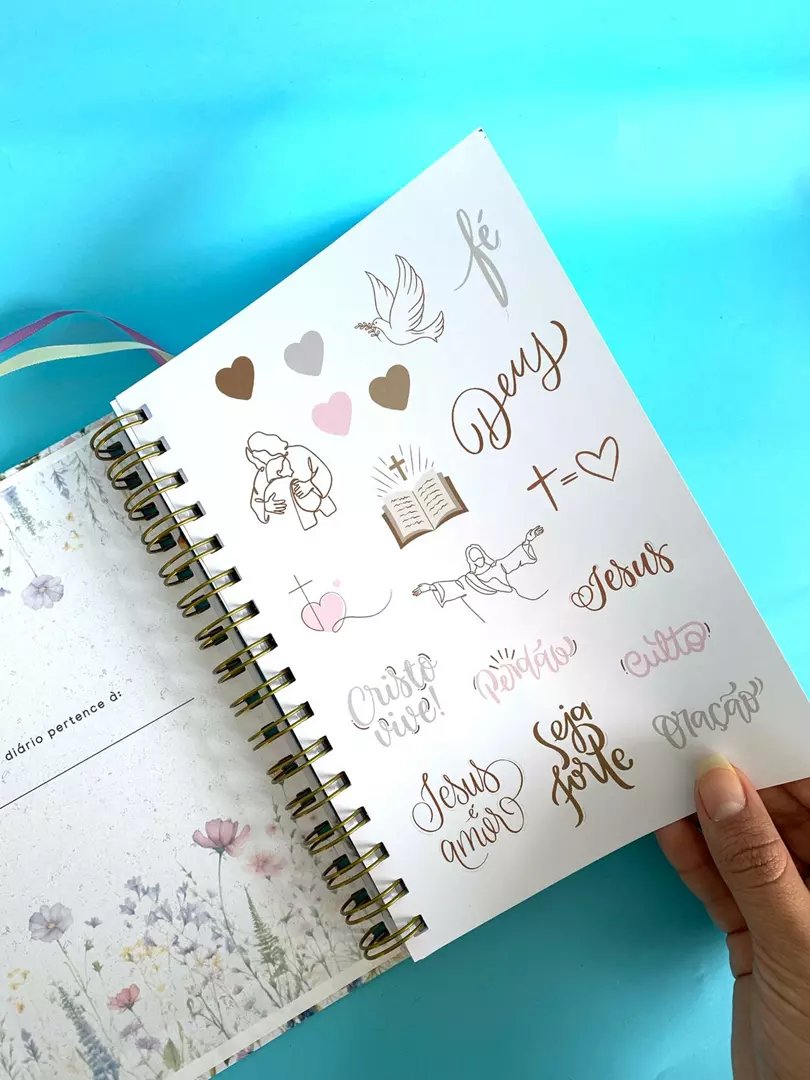 fé
Deus
✝=♡
Jesus
Cristo
vive!
Perdão
Culto
Jesus
é
amor
Seja
forte
Oração
diário pertence à: